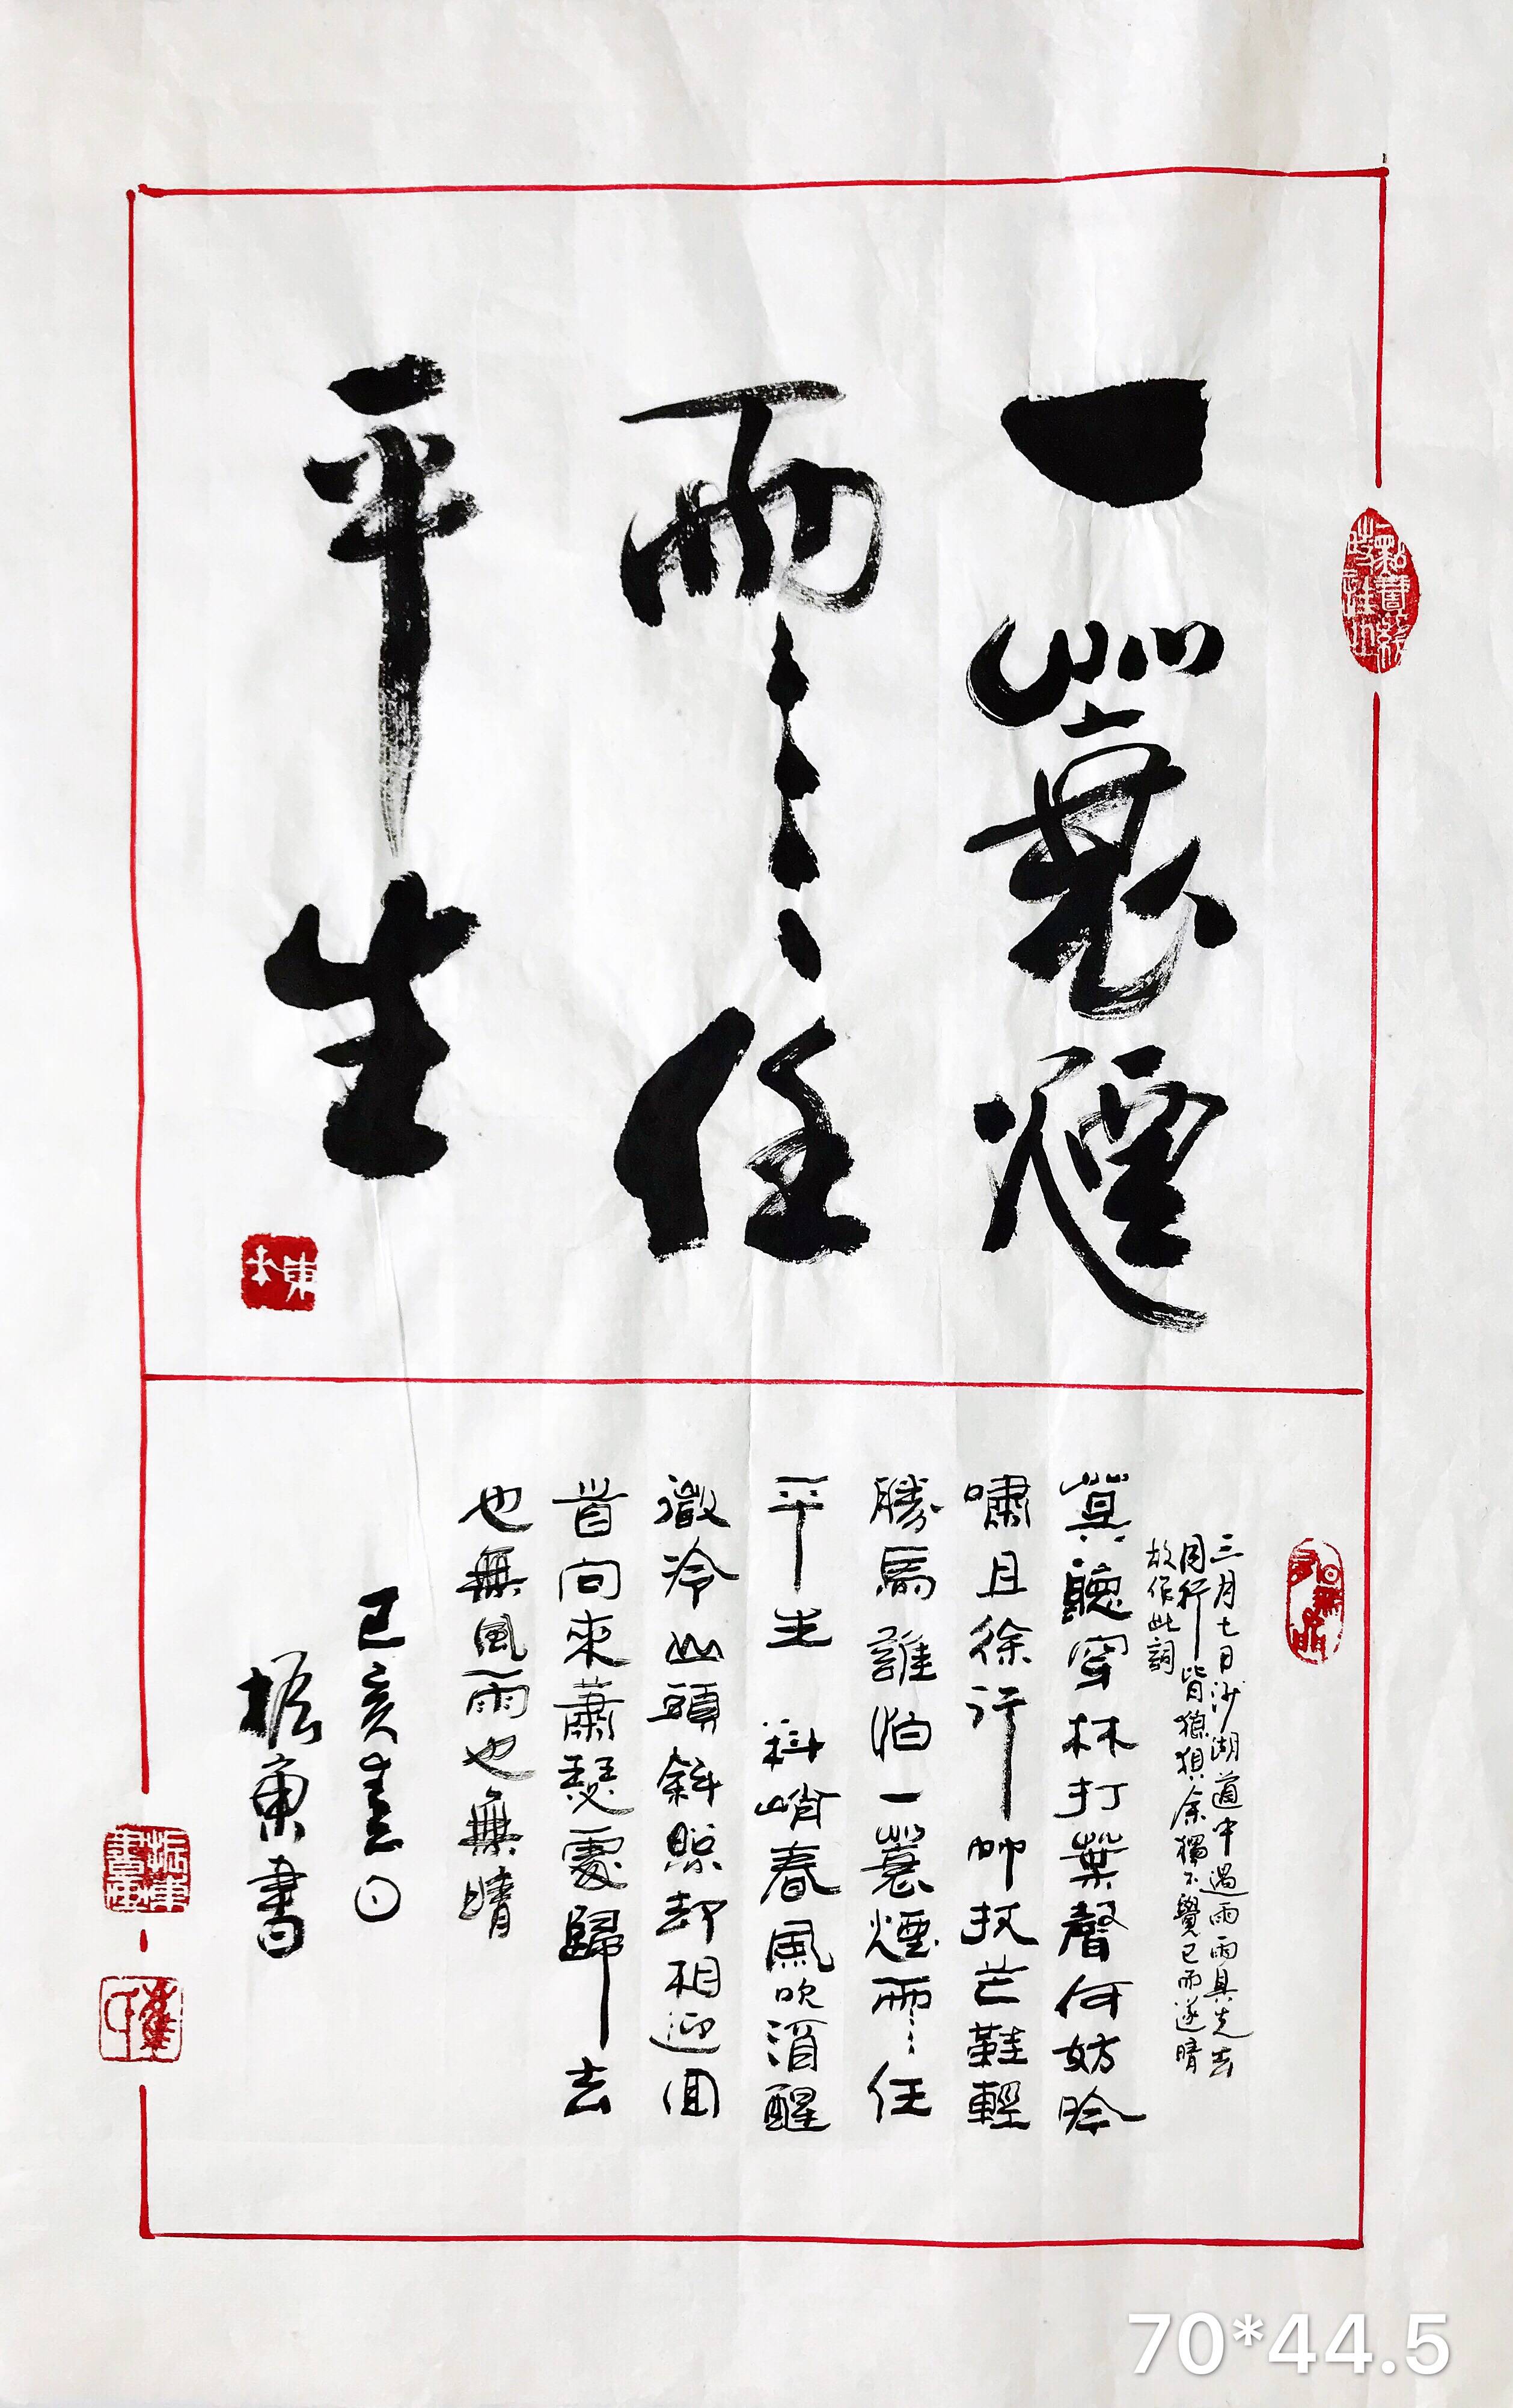 一蓑煙
雨任
平生
三月七日沙湖道中遇雨雨具先去
同行皆狼狽余獨不覺已而遂晴
故作此詞
莫聽穿林打葉聲何妨吟
嘯且徐行竹杖芒鞋輕
勝馬誰怕一蓑煙雨任
平生 料峭春風吹酒醒
微冷山頭斜照却相迎回
首向來蕭瑟處歸去
也無風雨也無晴
己亥春日
振東書
70*44.5